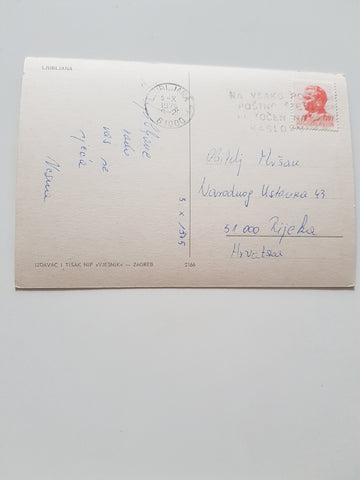 LJUBLJANA
LJUBLJANA
5-X
1975
61000
NA VSAKO PO
POŠTNO
TOČEN NA
NASLOV
Ljubljane
rado
vas se
sjeća
Vesna
3 X 1975
Obitelj Mršan
Narodnog Ustanka 43
51 000 Rijeka
Hrvatska
IZDAVAČ I TISAK NIP »VJESNIK« — ZAGREB
2166